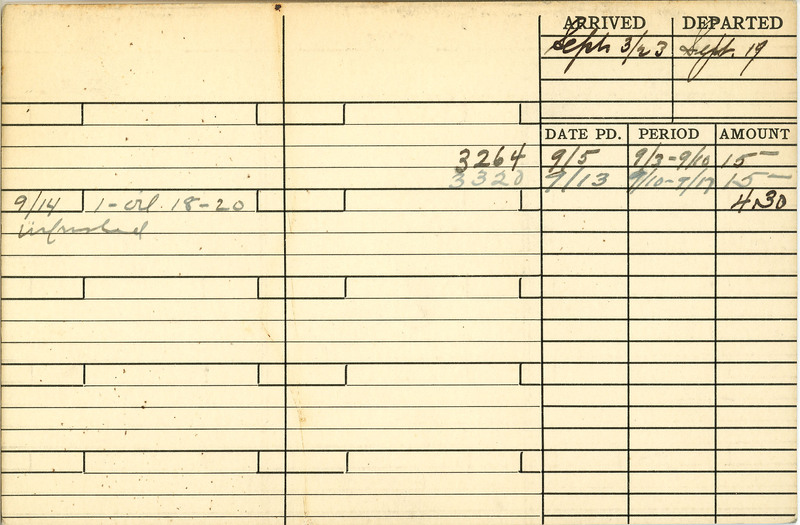 ARRIVED DEPARTED
Sept 3/23 Sept. 19
DATE PD. PERIOD AMOUNT
3264 9/5 9/3-9/10 15-
3320 9/13 9/10-9/17 15-
9/14 1-oil 18-20 4.30
unfinished